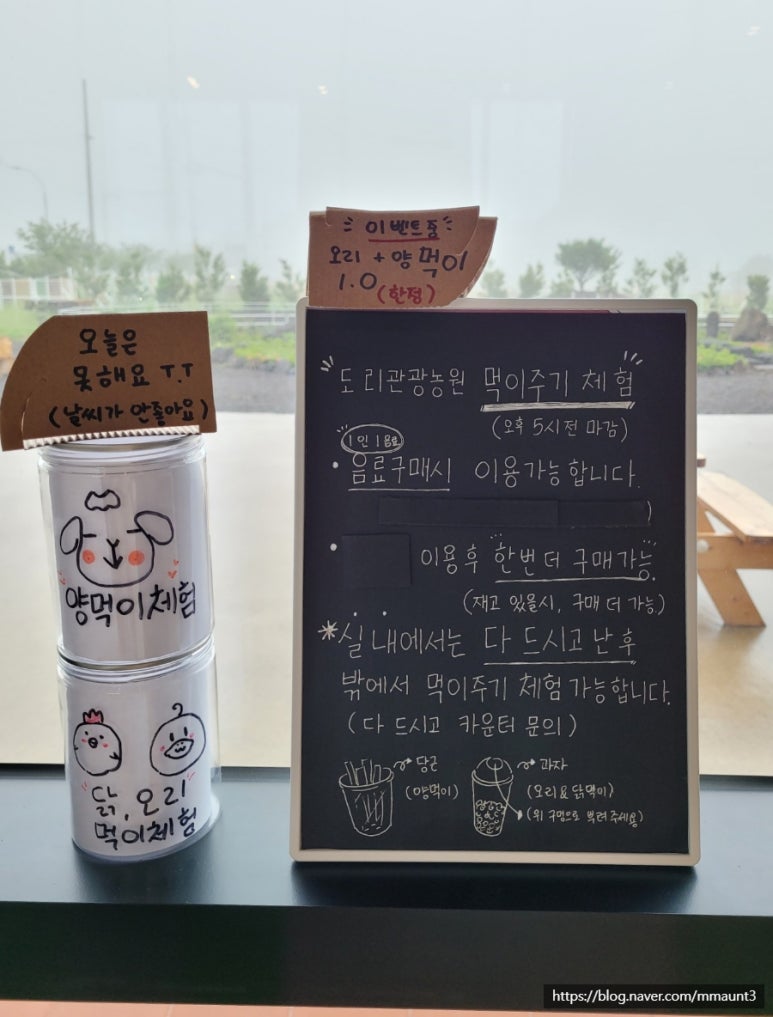 이벤트중
오리 + 양 먹이
1.0 (한정)
오늘은
못해요 T.T
(날씨가 안좋아요)
양먹이체험
닭, 오리
먹이체험
도리관광농원 먹이주기 체험
(오후 5시전 마감)
1인 1음료
• 음료구매시 이용가능합니다.
)
• 이용후 한번 더 구매가능
(재고 있을시, 구매 더 가능)
*실내에서는 다 드시고 난 후
밖에서 먹이주기 체험가능합니다.
(다 드시고 카운터 문의)
당근
(양먹이)
과자
(오리&닭먹이)
(위 구멍으로 뿌려주세용)
https://blog.naver.com/mmaunt3